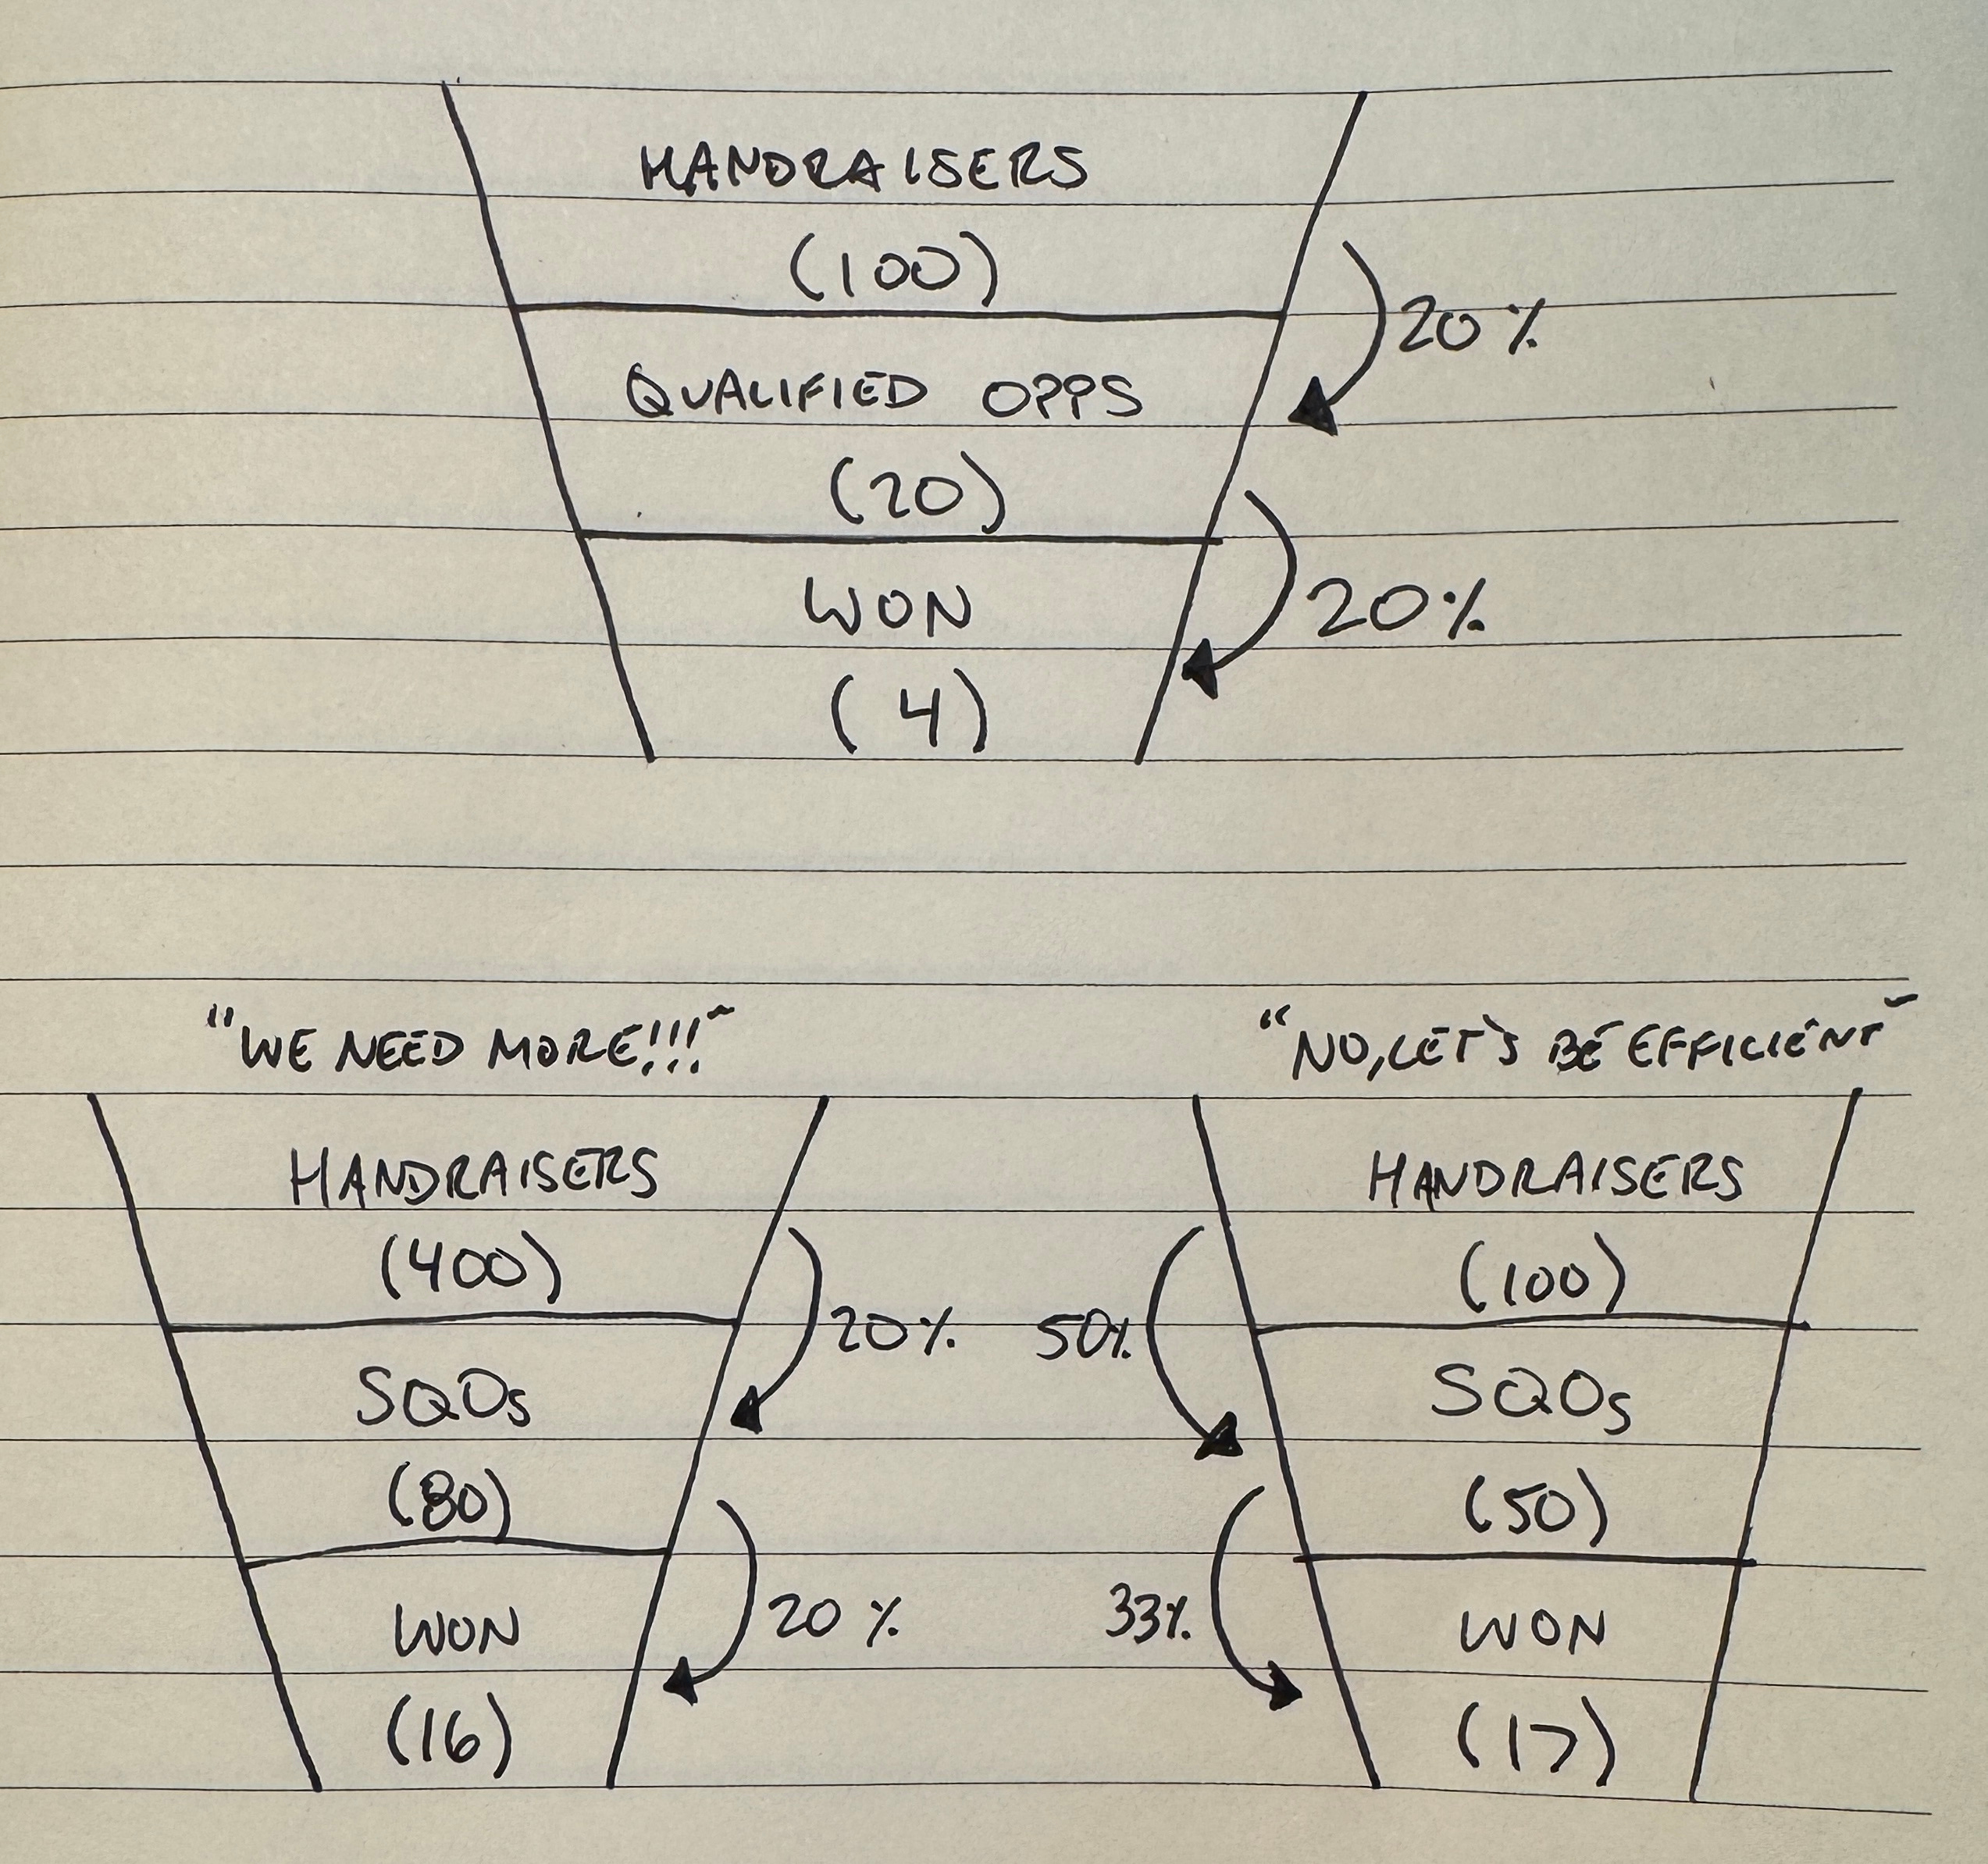 HANDRAISERS
(100)
20%
QUALIFIED OPPS
(20)
20%
WON
(4)
"WE NEED MORE!!!"
HANDRAISERS
(400)
20%
SQOs
(80)
20%
WON
(16)
"NO, LET'S BE EFFICIENT"
HANDRAISERS
(100)
50%
SQOs
(50)
33%
WON
(17)